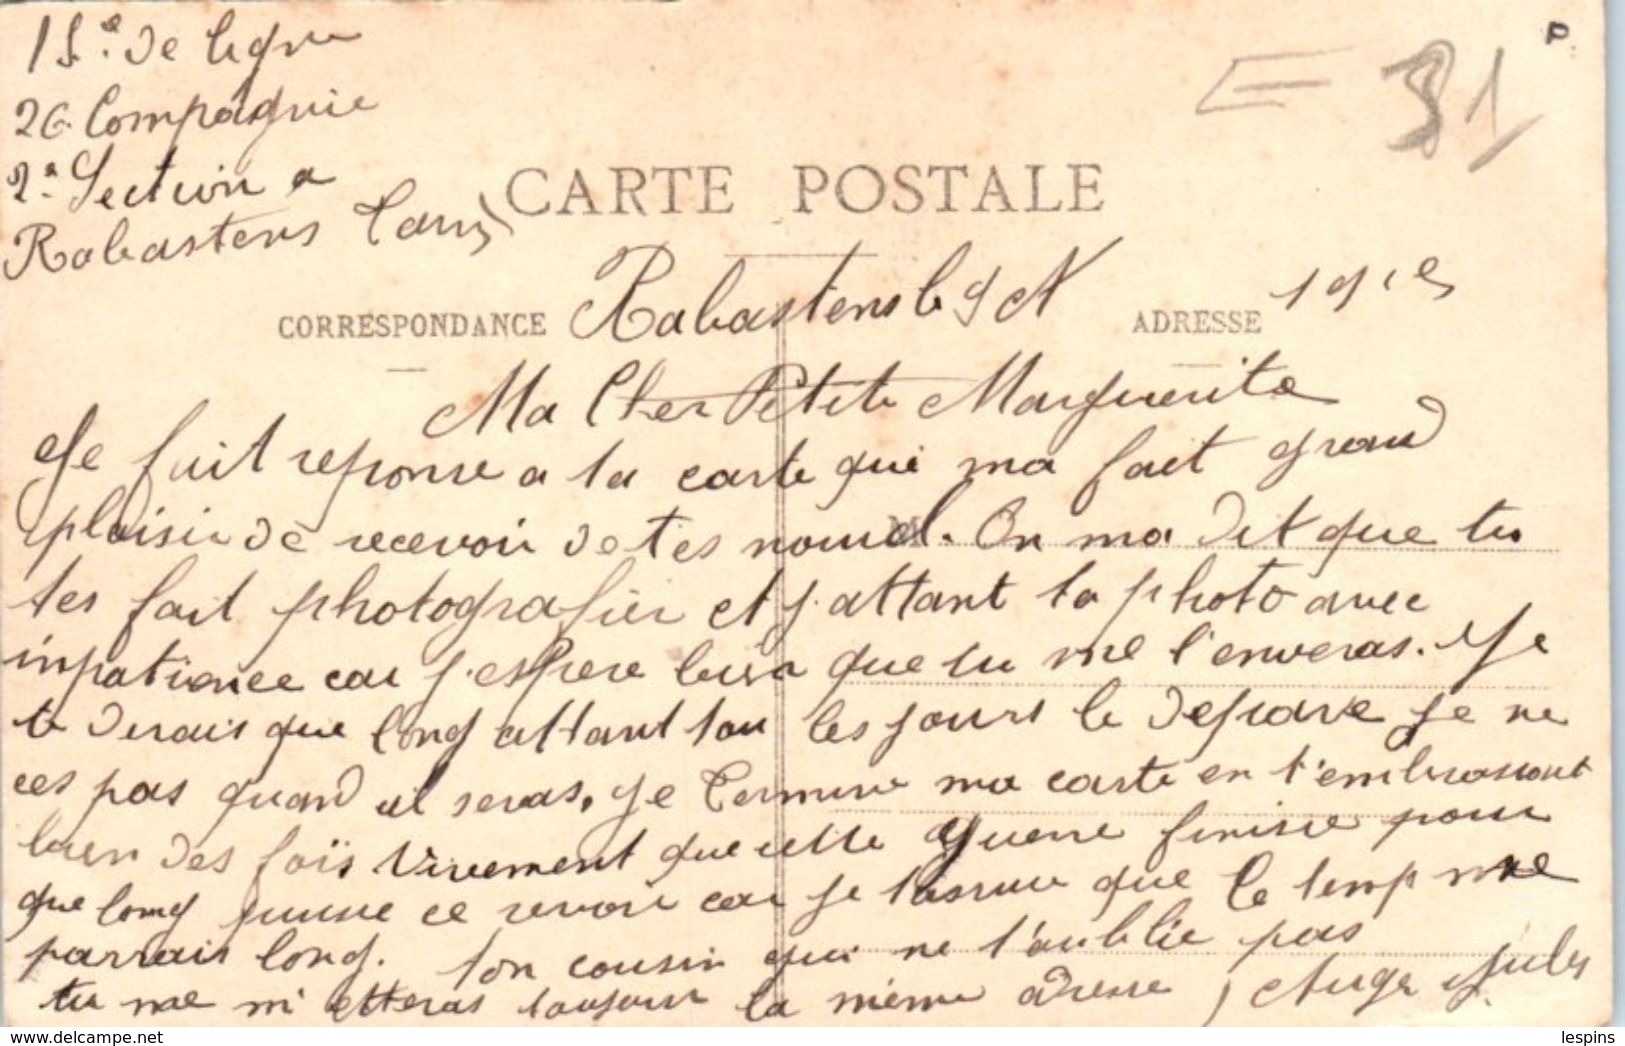 15e. de ligne
26 Compagnie
2e. Section a
Rabastens Tarn
P
31
CARTE POSTALE
CORRESPONDANCE
Rabastens le 9 N 191
ADRESSE
Ma Cher Petite Marguerite
Je fait reponse a la carte qui ma fait grand
plaisir de recevoir de tes nouvel. On ma dit que tu
tes fait photografier et j'attant la photo avec
inpatience car j'espere bien que tu me l'enveras. Je
te dirais que long attant tou les jours le depare je ne
ces pas quand il seras, Je termine ma carte en t'embrassant
bien des fois Vivement que cette guerre finisse pour
que long puisse ce revoir car je tassure que le temp me
parrais long. Ton cousin qui ne t'oublie pas
tu me metteras toujour la même adresse, Auge Jules
lespins